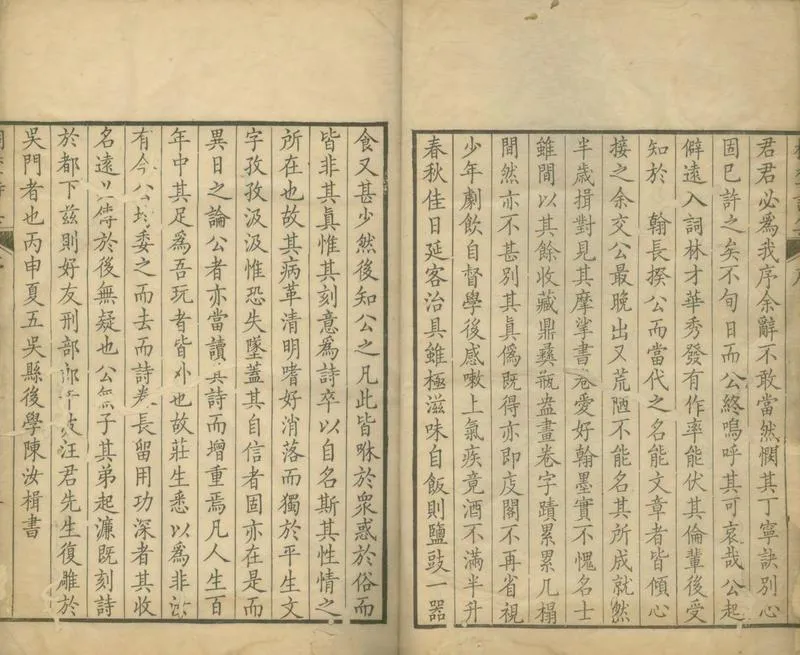 君君必爲我序余辭不敢當然憫其丁寧訣別心
固已許之矣不旬日而公終嗚呼其可哀哉公起
僻遠入詞林才華秀發有作率能伏其倫輩後受
知於 翰長揆公而當代之名能文章者皆傾心
接之余交公最晚出又荒陋不能名其所成就然
半歲揖對見其摩挲書卷愛好翰墨實不愧名士
雖間以其餘收藏鼎彞瓶盎畫卷字蹟累累几榻
間然亦不甚別其眞僞既得亦即庋閣不再省視
少年劇飮自督學後感嗽上氣疾竟酒不滿半升
春秋佳日延客治具雖極滋味自飯則鹽豉一器
食又甚少然後知公之凡此皆咻於衆惑於俗而
皆非其眞惟其刻意爲詩卒以自名斯其性情之
所在也故其病革清明嗜好消落而獨於平生文
字孜孜汲汲惟恐失墜蓋其自信者固亦在是而
異日之論公者亦當讀其詩而增重焉凡人生百
年中其足爲吾玩者皆外也故莊生悉以爲非
有今公埽委之而去而詩卷長留用功深者其收
名遠以傳於後無疑也公無子其弟起濂既刻詩
於都下茲則好友刑部 汪君先生復雕於
吳門者也丙申夏五吳縣後學陳汝楫書